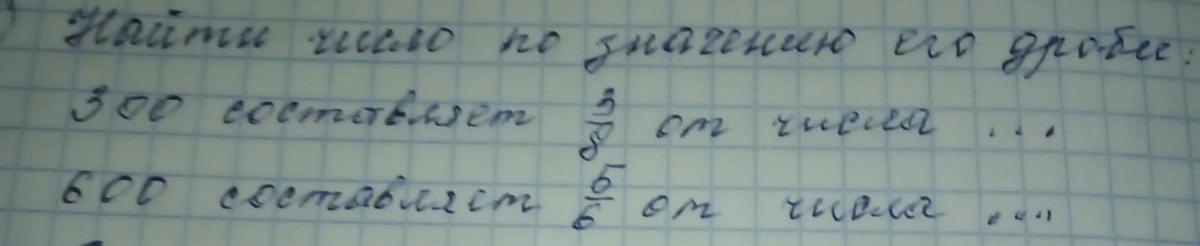 Найти число по значению его дроби:
300 составляет 3/8 от числа ...
600 составляет 5/6 от числа ....